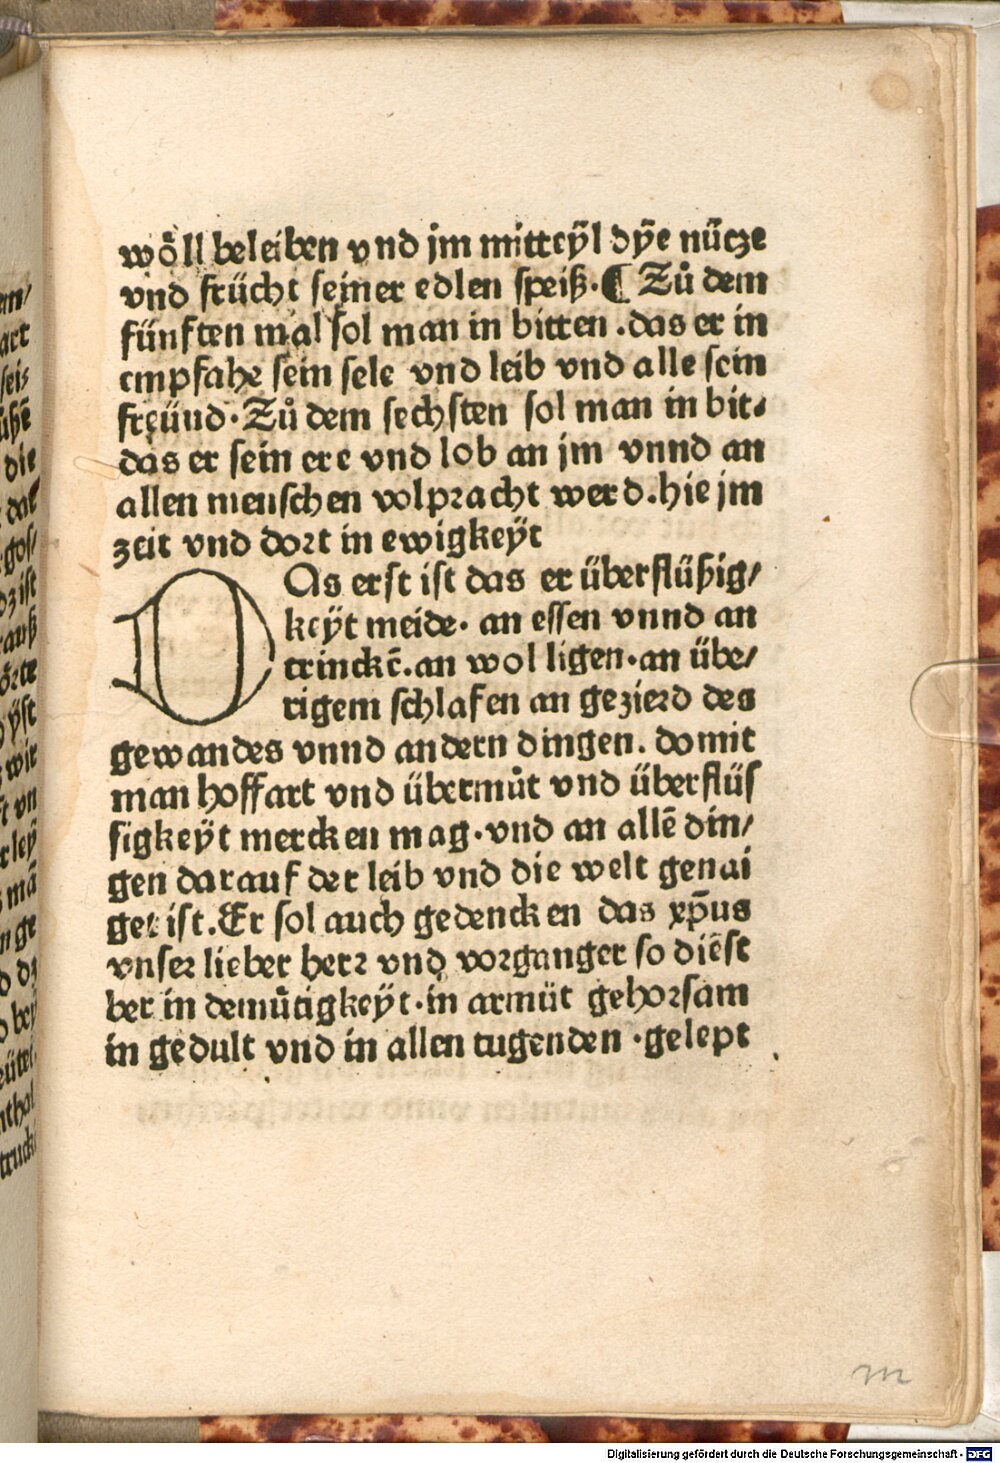 wöll beleiben vnd jm mitteÿl dÿe nücze
vnd frücht seiner edlen speiß. ¶ Zů dem
fünften mal sol man in bitten .das er in
empfahe sein sele vnd leib vnd alle sein
freünd. Zů dem sechsten sol man in bit⸗
das er sein ere vnd lob an jm vnnd an
allen menschen volpracht werd.hie jm
zeit vnd dort in ewigkeÿt
DAs erst ist das er überflüßig/
keÿt meide. an essen vnnd an
trinckē.an wol ligen.an übe/
rigem schlafen an gezierd des
gewandes vnnd andern dingen. domit
man hoffart vnd übermůt vnd überflüs
sigkeÿt mercken mag.vnd an allē din/
gen darauf der leib vnd die welt genai
get ist.Er sol auch gedencken das xp̄us
vnser lieber herr vnd vorganger so diēst
ber in demůtigkeÿt.in armüt gehorsam
in gedult vnd in allen tugenden .gelept
m
Digitalisierung gefördert durch die Deutsche Forschungsgemeinschaft - DFG